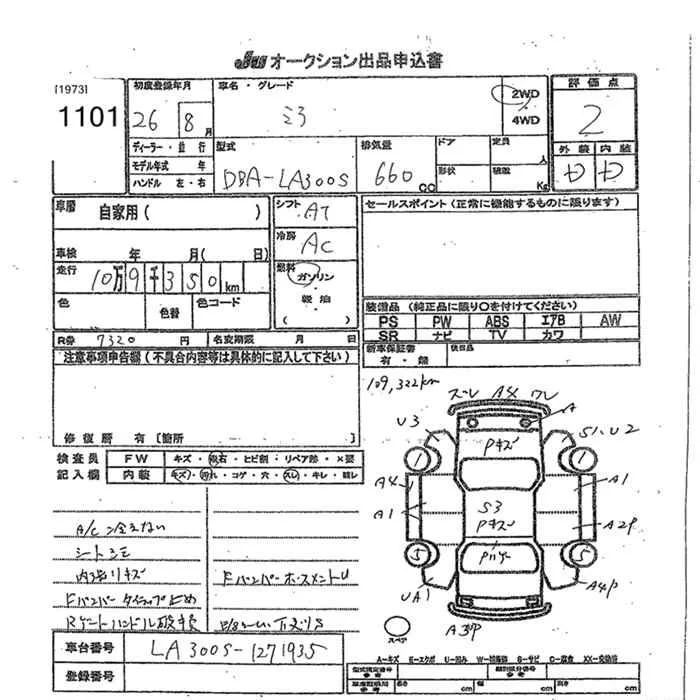 JU オークション出品申込書
[1973]
1101
初度登録年月
26 8月
車名・グレード
ミラ
2WD
4WD
評価点
2
外装 内装
ディーラー・並行
モデル年式 年
ハンドル 左・右
型式
DBA-LA300S
排気量
660 CC
ドア
形状
定員 人
積載 Kg
D D
車歴 自家用( )
シフト AT
セールスポイント(正常に機能するものに限ります)
車検 年 月( 日)
冷房 AC
走行 10万9千350km
燃料 ガソリン
軽油
( )
色
色替
色コード
装備品 (純正品に限り○を付けてください)
PS PW ABS エアB AW
SR ナビ TV カワ
R券 7320 円 名変期限 月 日
新車保証書
有・無
後日品
注意事項申告欄(不具合内容等は具体的に記入して下さい)
109,322km
修復歴 有 [箇所 ]
検査員
記入欄
FW キズ・飛石・ヒビ割・リペア跡・×要
内装 キズ・汚れ・コゲ・穴・スレ・キレ・願レ
ズレ A4 ワレ
A
U3
Pキズ
S1、U2
1 1
A4
A1
A1
S3
Pキズ
A2P
5 5
UA1
A4P
A3P
スペア
A/C冷えない
シートシミ
内張りキズ
Fバンパータイラップ止め
Rゲートハンドル破損
Fバンパーホースメント U
車台番号 LA300S-1271935
登録番号
A-キズ E-エクボ U-凹み W-補修跡 S-サビ C-腐食 XX-交換済
型式指定番号
参考
類別区分番号
参考
長さ cm 幅 cm 高さ cm